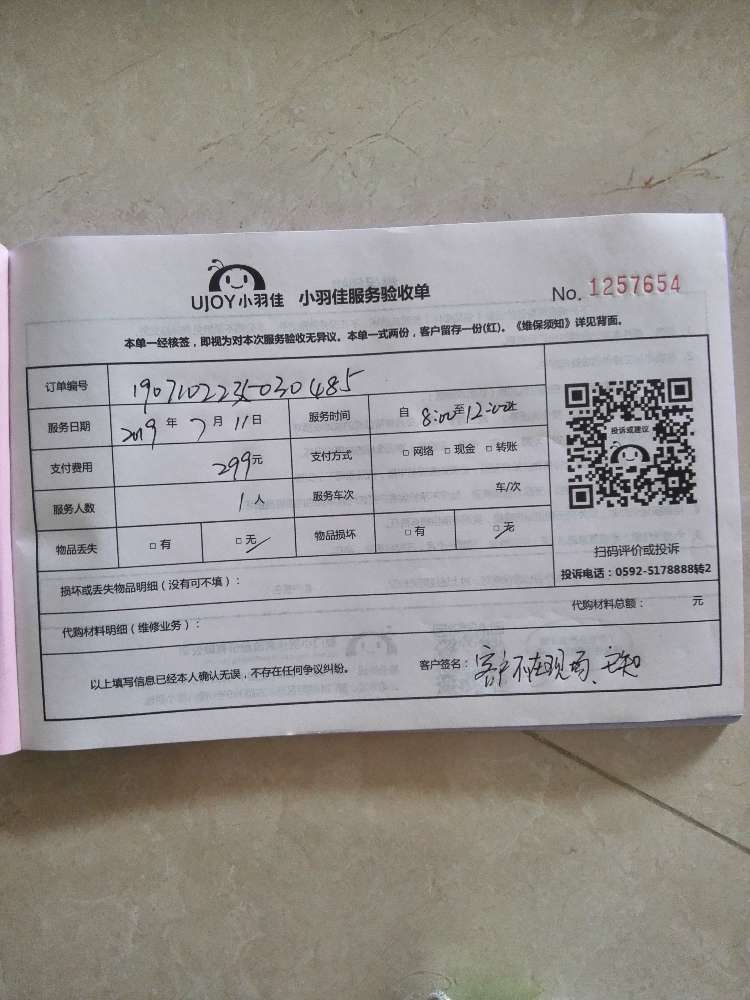 UJOY小羽佳 小羽佳服务验收单 No. 1257654
本单一经核签，即视为对本次服务验收无异议。本单一式两份，客户留存一份(红)。《维保须知》详见背面。
订单编号 1907102235030485
服务日期 2019 年 7 月 11 日 服务时间 自 8:00 至 12:00止
支付费用 299元 支付方式 □ 网络 □ 现金 □ 转账
服务人数 1 人 服务车次 车/次
物品丢失 □ 有 □ 无 物品损坏 □ 有 □ 无
投诉或建议
扫码评价或投诉
投诉电话：0592-5178888转2
损坏或丢失物品明细（没有可不填）：
代购材料明细（维修业务）： 代购材料总额： 元
以上填写信息已经本人确认无误，不存在任何争议纠纷。 客户签名： 客户不在现场、已知